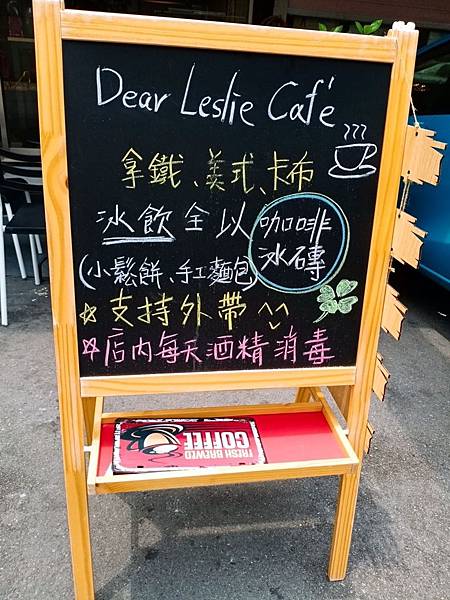 Dear Leslie Café
拿鐵、美式、卡布
冰飲全以咖啡冰磚
(小鬆餅、手工麵包)
☆支持外帶^^
☆店內每天酒精消毒
FRESH BREWED
COFFEE